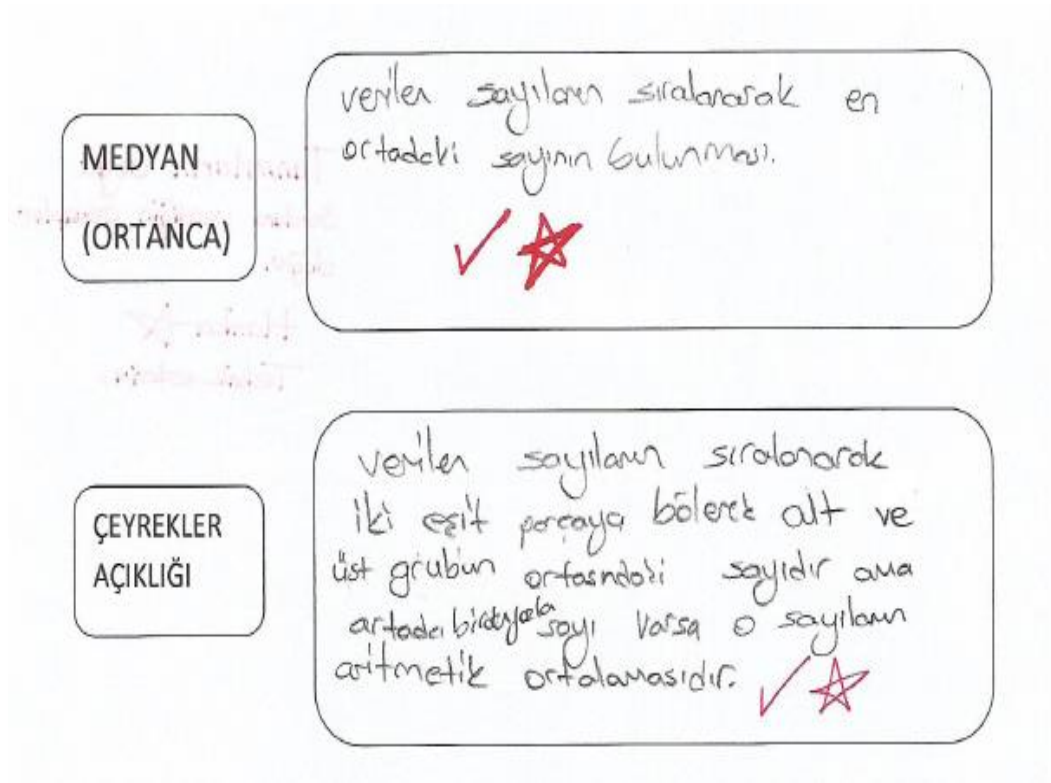 MEDYAN
(ORTANCA)
verilen sayıların sıralanarak en
ortadaki sayının bulunması.
ÇEYREKLER
AÇIKLIĞI
verilen sayıların sıralanarak
iki eşit parçaya bölerek alt ve
üst grubun ortasındaki sayıdır ama
ortada birden fazla sayı varsa o sayıların
aritmetik ortalamasıdır.